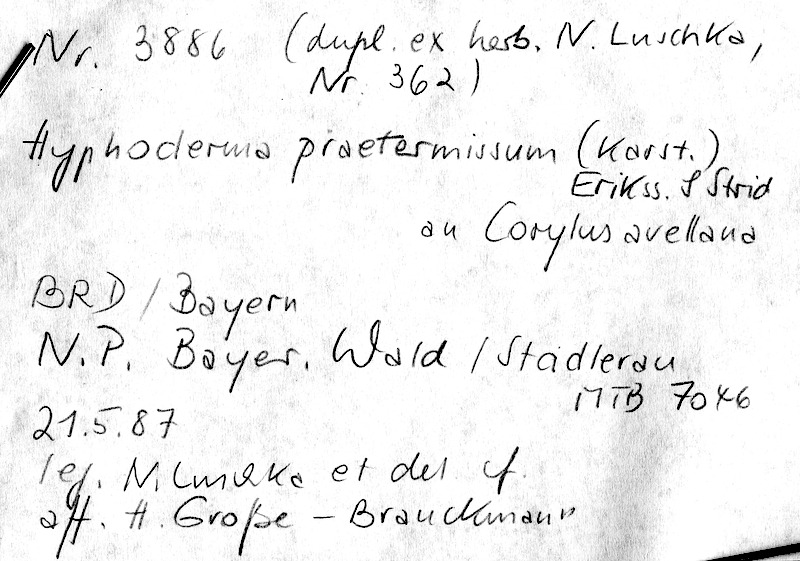 Nr. 3886 (dupl. ex herb. N. Luschka,
Nr. 362)
Hyphoderma praetermissum (Karst.)
Erikss. & Strid
an Corylus avellana
BRD / Bayern
N.P. Bayer. Wald / Stadlerau
MTB 7046
21.5.87
leg. N. Luschka et det cf.
aff. H. Große - Brauckmann